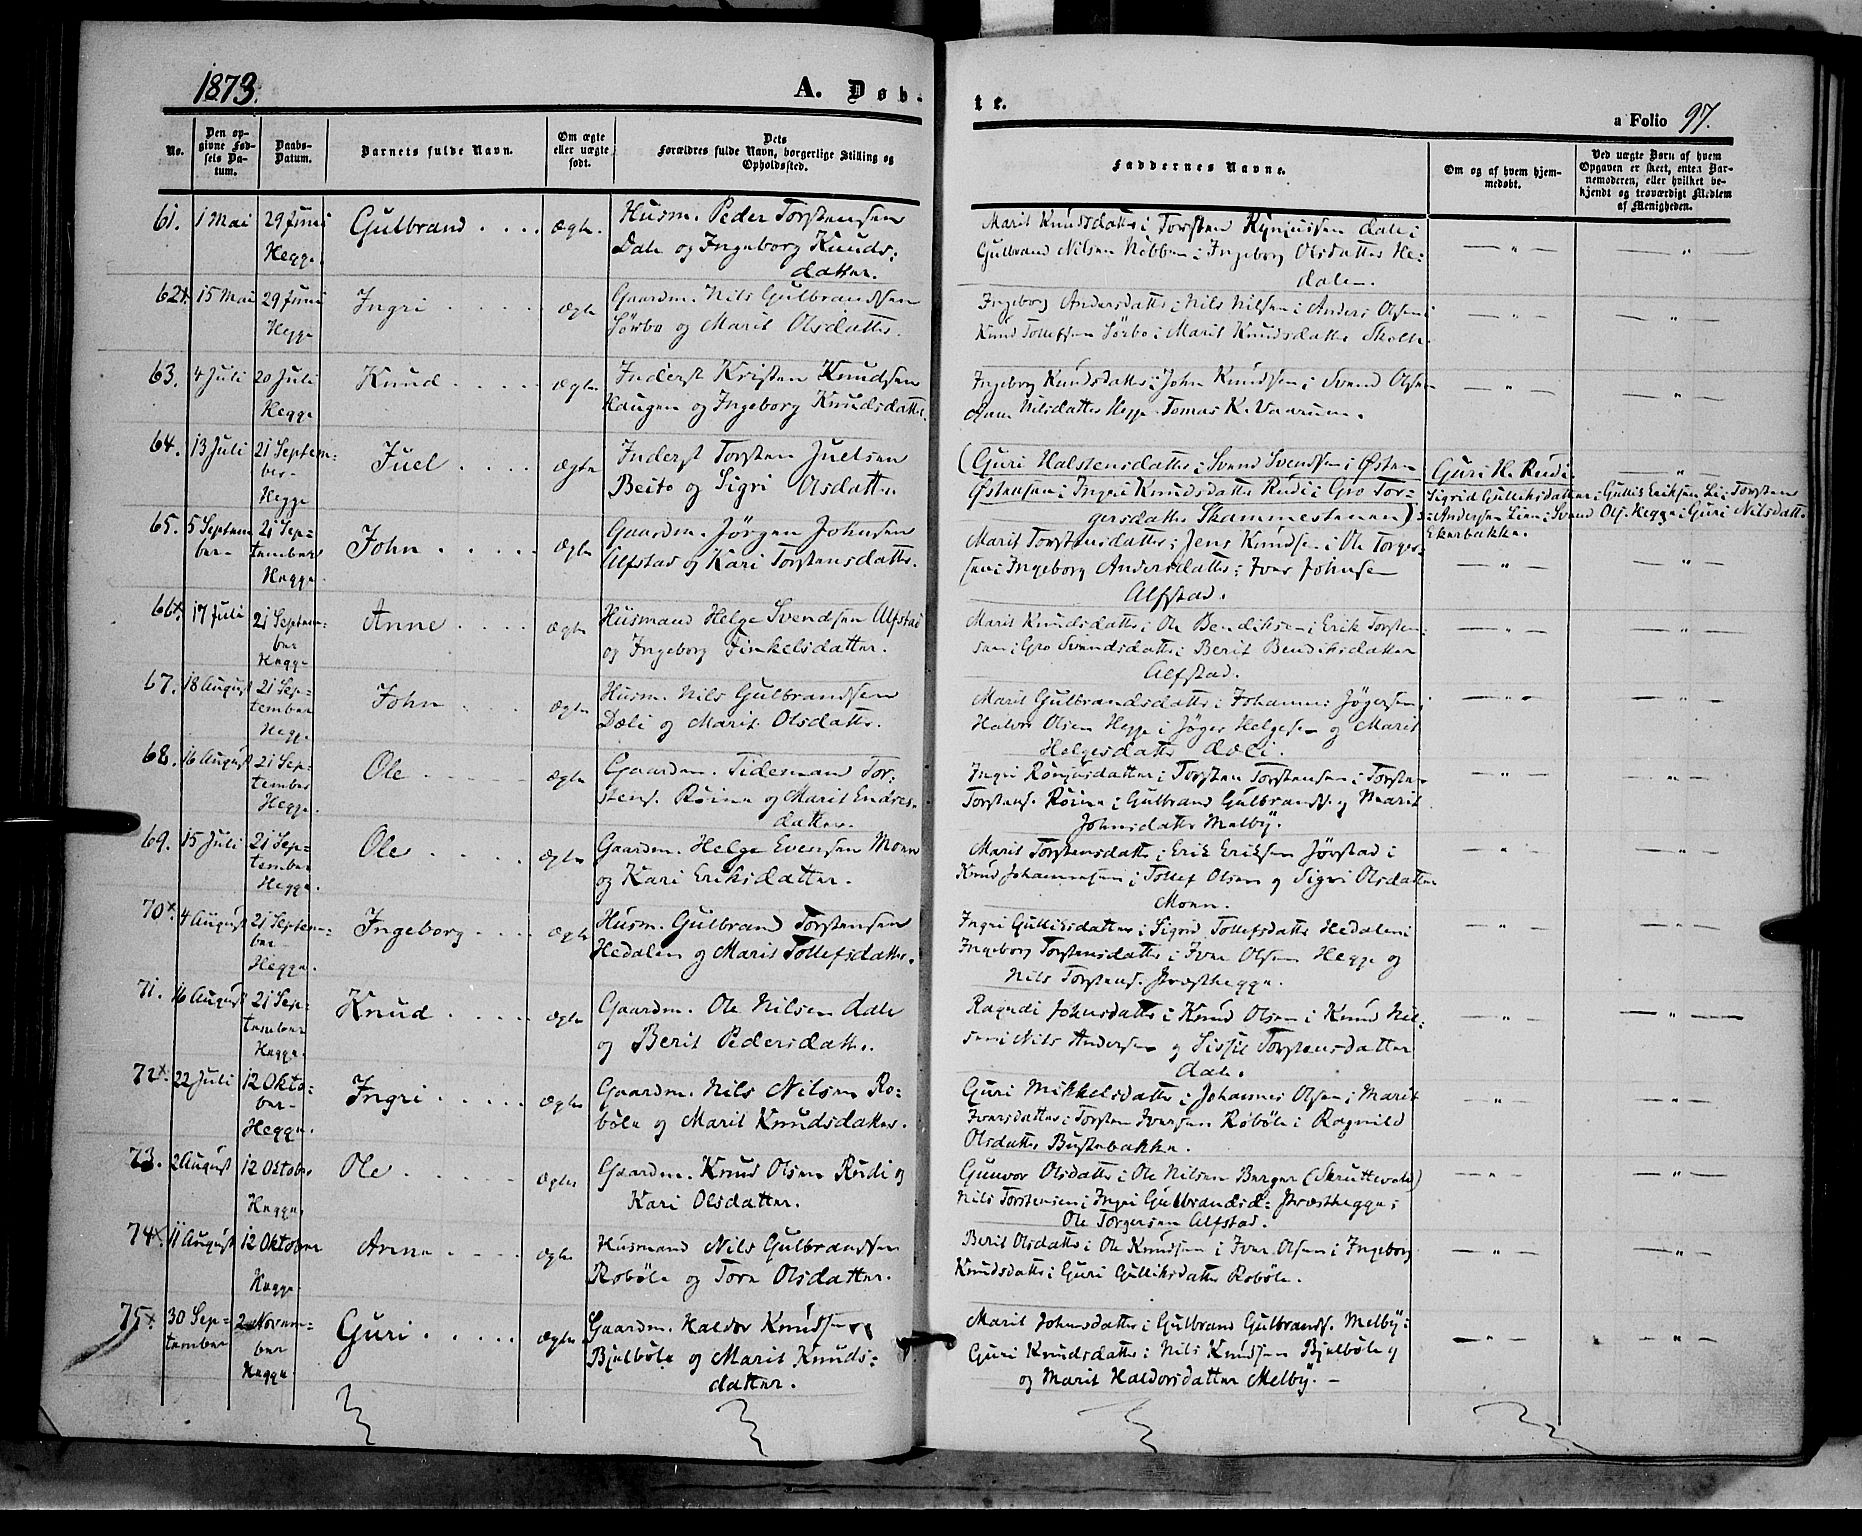 1873.
A. Døb-
te.
a Folio 97.
No.
Den op-
givne Fød-
sels Da-
tum.
Daabs-
Datum.
Barnets fulde Navn.
Om ægte
eller uægte
født.
Dets
Forældres fulde Navn, borgerlige Stilling og
Opholdssted.
Faddernes Navne.
Om og af hvem hjem-
medøbt.
Ved uægte Børn af hvem
Opgaven er skeet, enten Bar-
nemoderen, eller hvilket be-
kjendt og troværdigt Medlem
af Menigheden.
61. 1 Mai 29 Juni Gulbrand . . . . ægte. Husm. Peder Torstensen
Hegge. Dale og Ingeborg Knuds:
datter.
Marit Knudsdatter; Torsten dale;
Gulbrand Nilsen Nebben; Ingeborg Olsdatter He-
dalen.
62x. 15 Mai 29 Juni Ingri . . . . . ægte Gaardm. Nils Gulbrandsen
Hegge Sørbo og Marit Olsdatter.
Ingeborg Andersdatter; Nils Nilsen; Anders Olsen;
Knud Tollefsen Sørbo; Marit Knudsdatter
63. 4 Juli 20 Juli Knud . . . . . ægte Inderst Kristen Knudsen
Hegge Haugen og Ingeborg Knudsdatter.
Ingeborg Knudsdatter; John Knudsen; Svend Olsen
Nilsdatter Hegge. Tomas K.
64. 13 Juli 21 Septem- Juel . . . . ægte Inderst Torsten Juelsen
ber- Beito og Sigri Olsdatter
Hegge
(Guri Halstensdatter; Svend Svendsen; Østen
Østensen; Ingri Knudsdatter Rudi; Gro Tor-
gersdatter Skammestenen)
Guri H. Rudi
Sigrid Gulliksdatter; Gullik Eriksen Li; Torsten
Andersen Lien; Svend Ols. Hegge; Guri Nilsdatter
Ekerbakke.
65. 5 Septem 21 Sep- John . . . . . ægte Gaardm. Jørgen Johnsen
ber- tember Alfstad og Kari Torstensdatter.
Hegge.
Marit Torstensdatter; Jens Knudsen; Ole Torger-
sen; Ingeborg Andersdatter; Iver Johnsen
Alfstad.
66x. 17 Juli 21 Septem- Anne . . . . ægte Husmand Helge Svendsen Alfstad
ber og Ingeborg Finkelsdatter.
Hegge
Marit Knudsdatter; Ole Bendiksen; Erik Torsten-
sen; Gro Svendsdatter; Berit Bendiksdatter
Alfstad.
67. 18 August 21 Sep- John . . . ægte Husm. Nils Gulbrandsen
tember Dæli og Marit Olsdatter.
Hegge
Marit Gulbrandsdatter; Johannes Jøgersen;
Halvor Olsen Hegge; Jøger Helgesen og Marit
Helgesdatter dæli.
68. 16 August 21 Sep- Ole . . . . . ægte Gaardm. Tideman Tor-
tember stens. Røine og Marit Endres-
Hegge. datter.
Ingri datter; Torsten Torstensen; Torsten
Torstens. Røine; Gulbrand Gulbrands. og Marit
Johnsdatter Melby.
69. 15 Juli 21 Sep- Ole . . . . ægte Gaardm. Helge Evensen Moen
tember og Kari Eriksdatter.
Hegge.
Marit Torstensdatter; Erik Eriksen Jørstad;
Knud Johannesen; Tollef Olsen og Sigri Olsdatter
Moen.
70x. 4 August 21 Septem- Ingeborg . . . ægte Husm. Gulbrand Torstensen
ber- Hedalen og Marit Tollefsdatter.
Hegge.
Ingri Gulliksdatter; Sigrid Tollefsdatter Hedalen;
Ingeborg Torstensdatter; Iver Olsen Hegge og
Nils Torstens. Præsthegge.
71. 16 August 21 Sep- Knud . . . . ægte Gaardm. Ole Nilsen dale
tember og Berit Pedersdatter.
Hegge.
Ragndi Johnsdatter; Knud Olsen; Knud Nil-
sen; Nils Andersen og Sissil Torstensdatter
dale.
72x 22 Juli 12 Okto- Ingri . . . . . ægte Gaardm. Nils Nilsen Ro-
ber- bøle og Marit Knudsdatter.
Hegge.
Guri Mikkelsdatter; Johannes Olsen; Marit
Iversdatter; Torsten Iversen Robøle; Ragnild
Olsdatter Bustebakke.
73. 2 August 12 Oktober Ole . . . . . ægte Gaardm. Knud Olsen Rudi og
Hegge. Kari Olsdatter.
Gunvor Olsdatter; Ole Nilsen Berger (Skruttevold)
Nils Torstensen; Ingri Gulbrandsd: Præsthegge;
Ole Torgersen Alfstad.
74x. 11 August 12 Oktober Anne . . . . ægte Husmand Nils Gulbrandsen
Hegge. Robøle og Tore Olsdatter.
Berit Olsdatter; Ole Knudsen; Iver Olsen; Ingeborg
Knudsdatter; Guri Gulliksdatter Robøle.
75x. 30 Sep- 2 Novem- Guri . . . . . ægte Gaardm. Haldor Knudsen og
tember ber Bjelbøle og Marit Knuds-
Hegge. datter.
Marit Johnsdatter; Gulbrand Gulbrands. Melby;
Guri Knudsdatter; Nils Knudsen Bjelbøle og
og Marit Haldorsdatter Melby. -